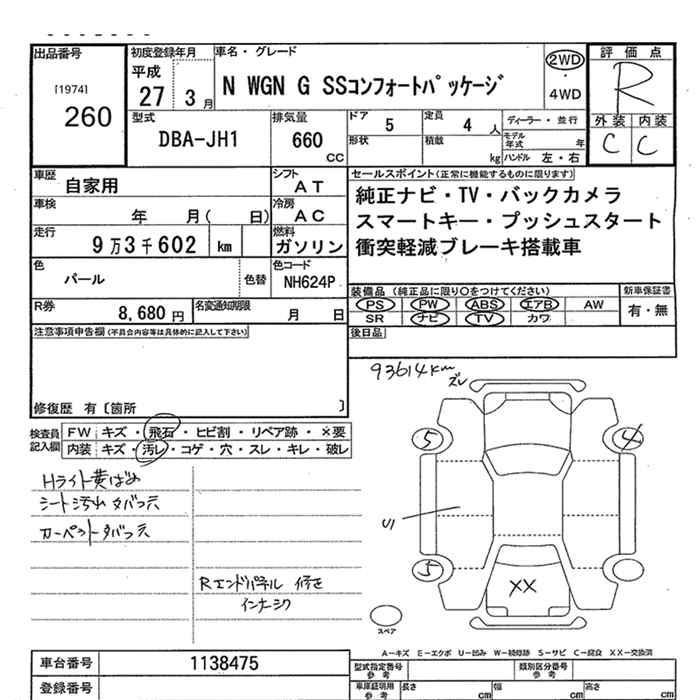 出品番号
[1974]
260
初度登録年月
平成
27 3月
車名・グレード
N WGN G SSコンフォートパッケージ
2WD
・
4WD
評価点
R
外装 内装
C C
型式
DBA-JH1
排気量
660
CC
ドア 5
定員 4 人
形状
積載 kg
ディーラー・並行
モデル年式 年
ハンドル 左・右
車歴 自家用
シフト AT
車検 年 月( 日)
冷房 AC
走行 9万3千602 km
燃料 ガソリン
色 パール
色替
色コード NH624P
R券 8,680円
名変通知期限 月 日
セールスポイント(正常に機能するものに限ります)
純正ナビ・TV・バックカメラ
スマートキー・プッシュスタート
衝突軽減ブレーキ搭載車
装備品 (純正品に限り○をつけてください)
新車保証書
PS PW ABS エアB AW
SR ナビ TV カワ
有・無
後日品
注意事項申告欄(不具合内容等は具体的に記入して下さい)
修復歴 有〔箇所 〕
93614km
ズレ
検査員記入欄
FW キズ・飛石・ヒビ割・リペア跡・×要
内装 キズ・汚レ・コゲ・穴・スレ・キレ・破レ
Hライト黄ばみ
シート汚れ タバコ穴
カーペットタバコ穴
Rエンドパネル 修正
インナーシワ
5
4
U1
5
XX
スペア
A−キズ E−エクボ U−凹み W−補修跡 S−サビ C−腐食 XX−交換済
車台番号 1138475
登録番号
型式指定番号 参考
類別区分番号 参考
車庫証明用 参考
長さ cm
幅 cm
高さ cm